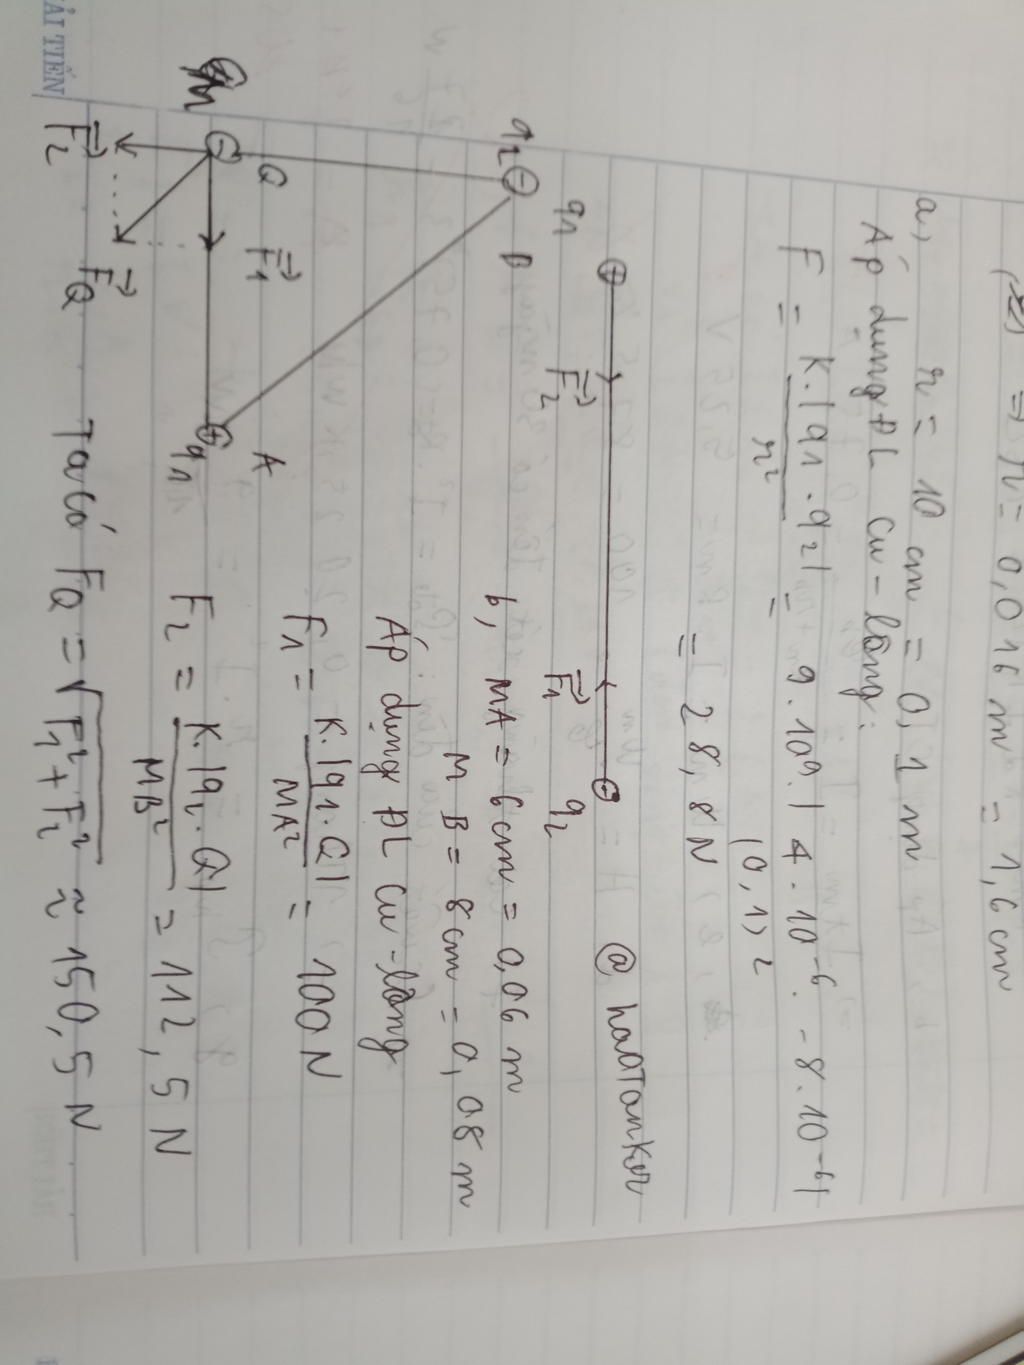 ⇒ r = 0,016 m = 1,6 cm
a, r = 10 cm = 0,1 m
Áp dụng ĐL cu-lông:
F = K.|q1.q2| / r² = 9.10⁹.|4.10⁻⁶.-8.10⁻⁶| / (0,1)²
= 28,8 N
q1 F2 F1 q2
@ haoTanker
b, MA = 6cm = 0,06 m
MB = 8cm = 0,08 m
Áp dụng ĐL cu-lông
F1 = K.|q1.Q| / MA² = 100 N
F2 = K.|q2.Q| / MB² = 112,5 N
Ta có FQ = √F1² + F2² ≈ 150,5 N
q2 B
Q F1 A
q1
F2 FQ
ẢI TIẾN